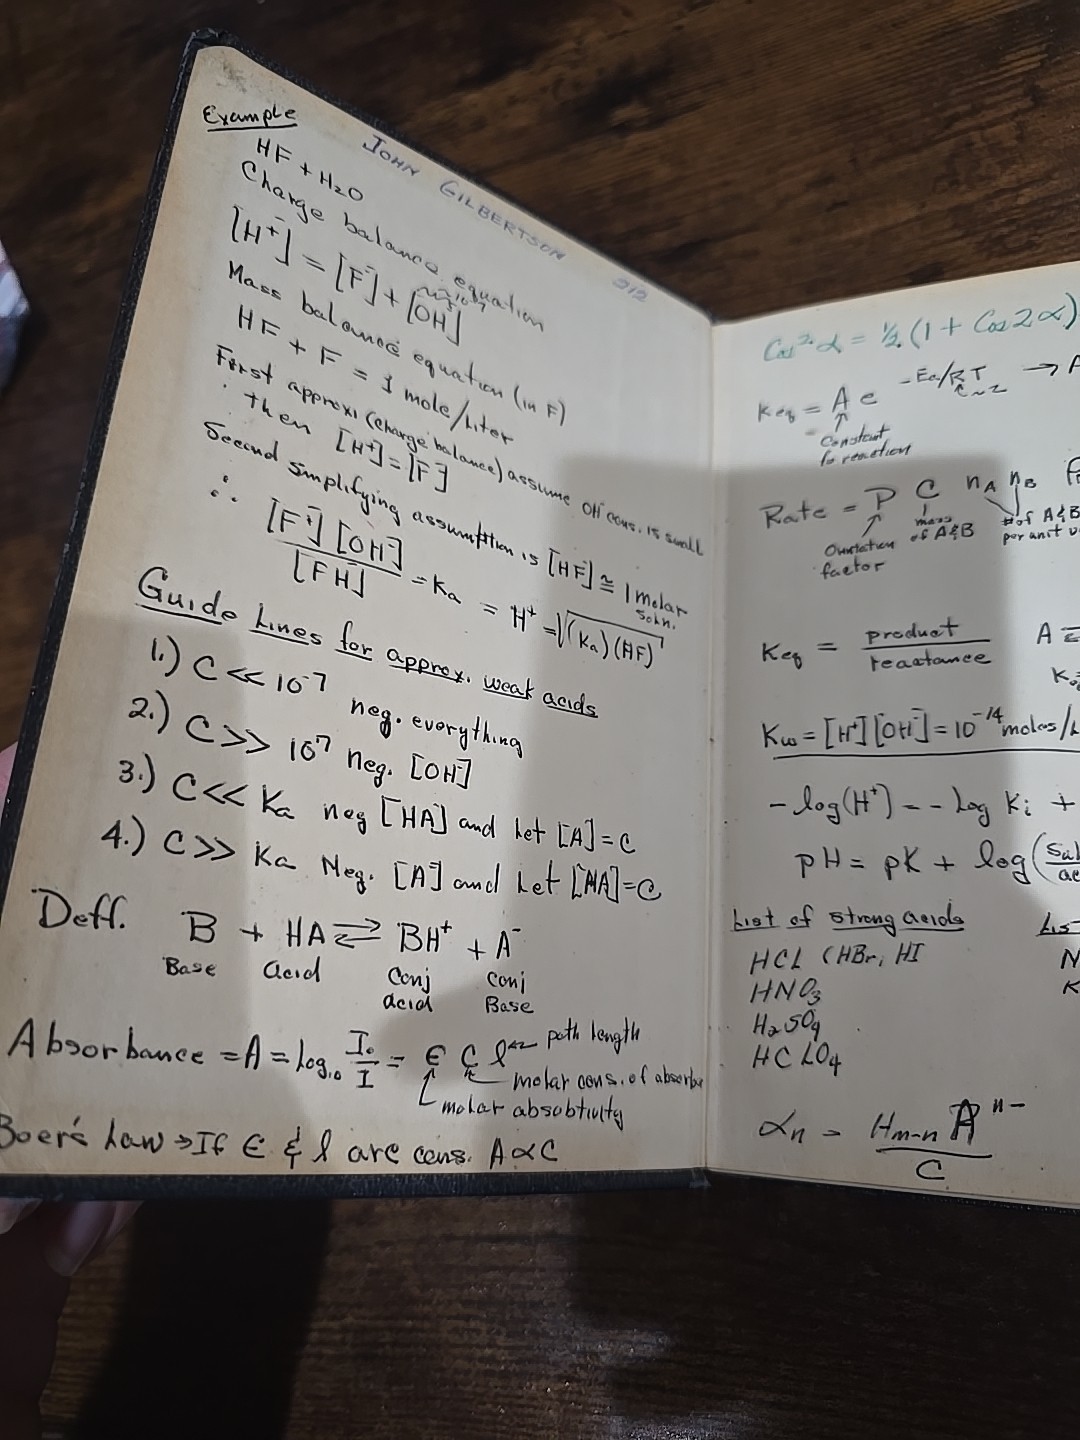 Example
JOHN GILBERTSON 212
HF + H2O
Charge balance equation
[H+] = [F-] + [OH-]
Mass balance equation (in F)
HF + F = 1 mole/liter
First approxi (charge balance) assume OH cons. is small
∴ then [H+] = [F-]
Second simplifying assumption is [HF] ≅ 1 molar soln.
∴ [F+] [OH-] / [FH] = Ka = H+ = √(Ka)(HF)
Guide Lines for approx. weak acids
1.) C << 10-7 neg. everything
2.) C >> 10-7 neg. [OH-]
3.) C << Ka neg [HA] and let [A-] = C
4.) C >> Ka Neg. [A-] and Let [HA] = C
Deff. B + HA ⇌ BH+ + A-
Base acid conj acid conj Base
Absorbance = A = Log10 Io/I = ϵ C l ← path length
molar cons. of absorbe
molar absobtivity
Boer's Law → If ϵ & l are cons. A ∝ C
Cos² α = ½ (1 + Cos 2α)
Keq = A e -Ea/RT →
Constant for reaction
Rate = P C nA nB
Orientation factor
mass of A & B
# of A & B
per unit
Keq = product / reactance
A
Kw = [H+] [OH-] = 10-14 moles/
- log (H+) = - Log Ki +
pH = pK + log (
List of strong acids
HCL (HBr, HI
HNO3
H2SO4
HCLO4
αn = Hm-n A n- / C